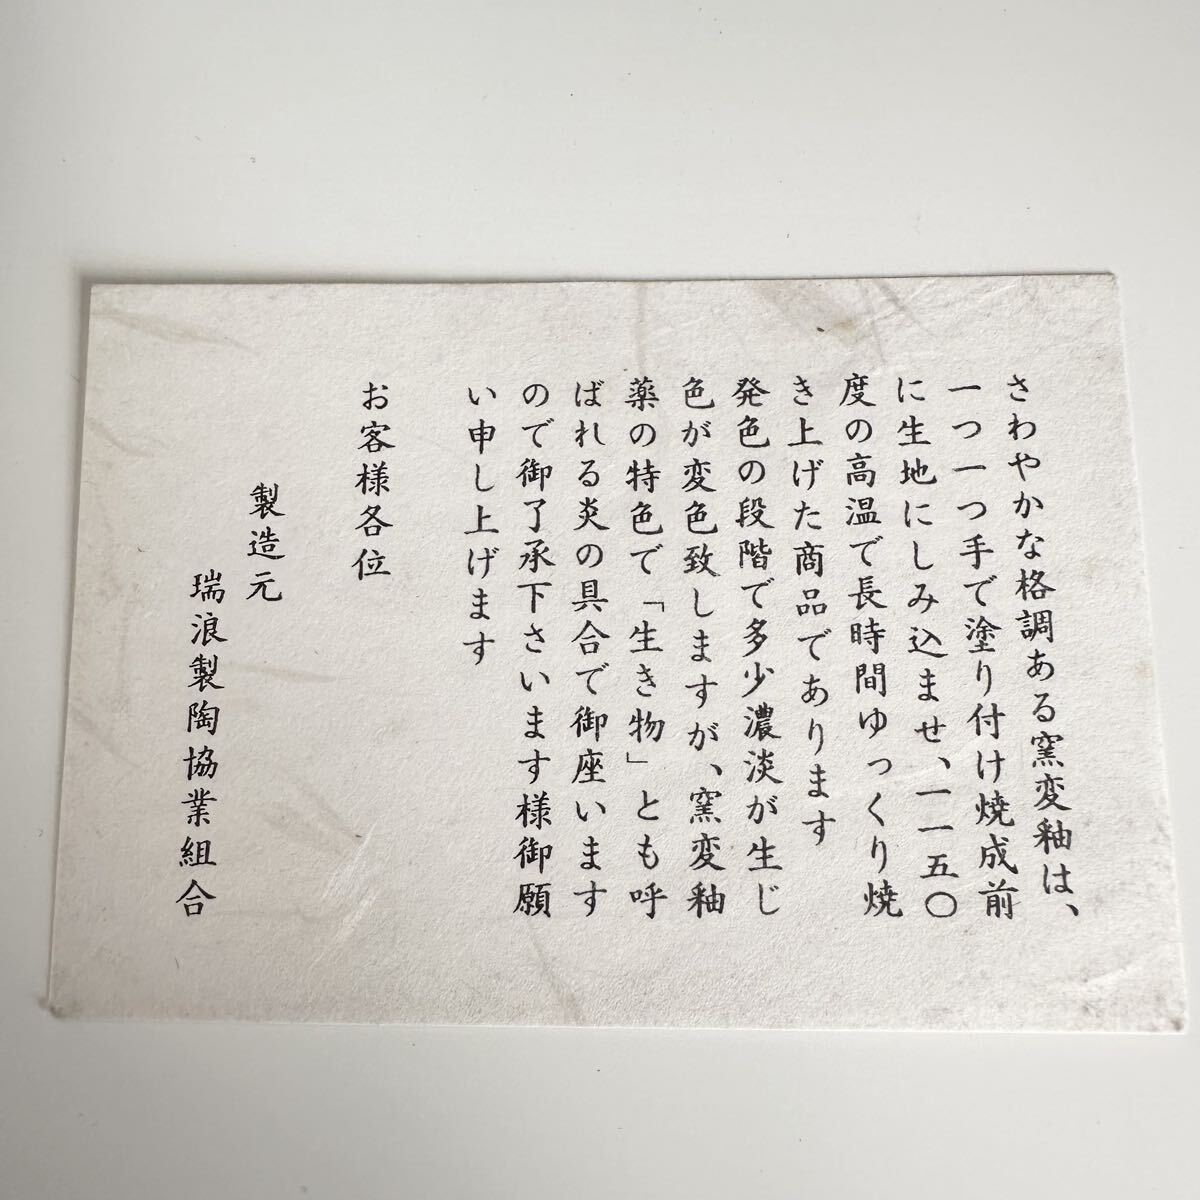 さわやかな格調ある窯変釉は、
一つ一つ手で塗り付け焼成前
に生地にしみ込ませ、一一五〇
度の高温で長時間ゆっくり焼
き上げた商品であります
発色の段階で多少濃淡が生じ
色が変色致しますが、窯変釉
薬の特色で「生き物」とも呼
ばれる炎の具合で御座います
ので御了承下さいます様御願
い申し上げます
お客様各位
製造元
瑞浪製陶協業組合